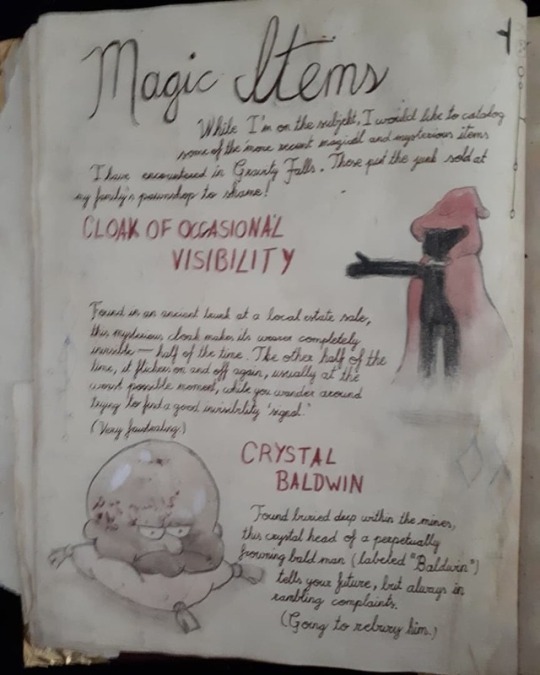 Magic Items
While I'm on the subjekt, I would like to catalog
some of the more recent magical and mysterious items
I have encountered in Gravity Falls. These put the junk sold at
my family's pawnshop to shame!
CLOAK OF OCCASIONAL
VISIBILITY
Found in an ancient trunk at a local estate sale,
this mysterious cloak makes its wearer completely
invisible — half of the time. The other half of the
time, it flickers on and off again, usually at the
worst possible moment, while you wander around
trying to find a good invisibility "signal."
(Very frustrating!)
CRYSTAL
BALDWIN
Found buried deep within the mines,
this crystal head of a perpetually
frowning bald man (labeled "Baldwin")
tells your future, but always in
rambling complaints.
(Going to rebury him.)